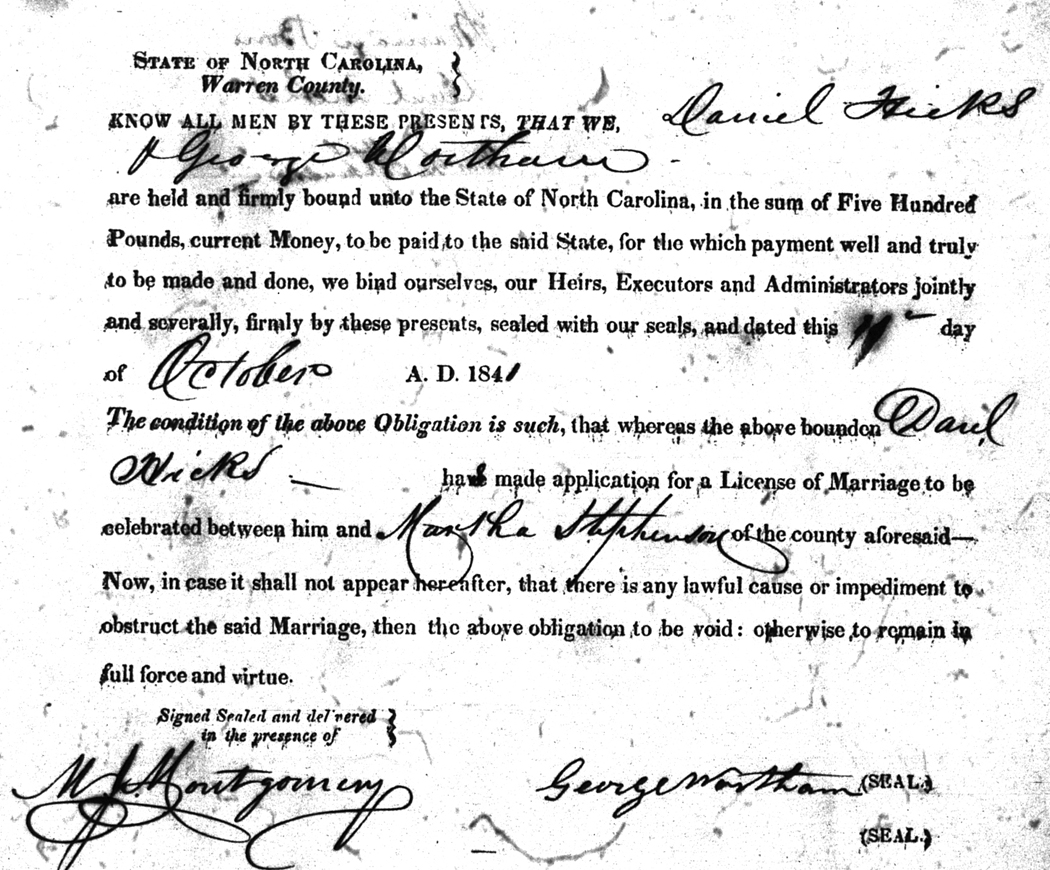 STATE OF NORTH CAROLINA, }
Warren County.
KNOW ALL MEN BY THESE PRESENTS, THAT WE, Daniel Hicks
& George Wortham
are held and firmly bound unto the State of North Carolina, in the sum of Five Hundred
Pounds, current Money, to be paid to the said State, for the which payment well and truly
to be made and done, we bind ourselves, our Heirs, Executors and Administrators jointly
and severally, firmly by these presents, sealed with our seals, and dated this day
of October A. D. 1841
The condition of the above Obligation is such, that whereas the above bounden Danl
Hicks — has made application for a License of Marriage to be
celebrated between him and Martha Stephenson of the county aforesaid—
Now, in case it shall not appear hereafter, that there is any lawful cause or impediment to
obstruct the said Marriage, then the above obligation to be void: otherwise to remain in
full force and virtue.
Signed Sealed and delivered }
in the presence of
Montgomery George Wortham (SEAL.)
(SEAL.)